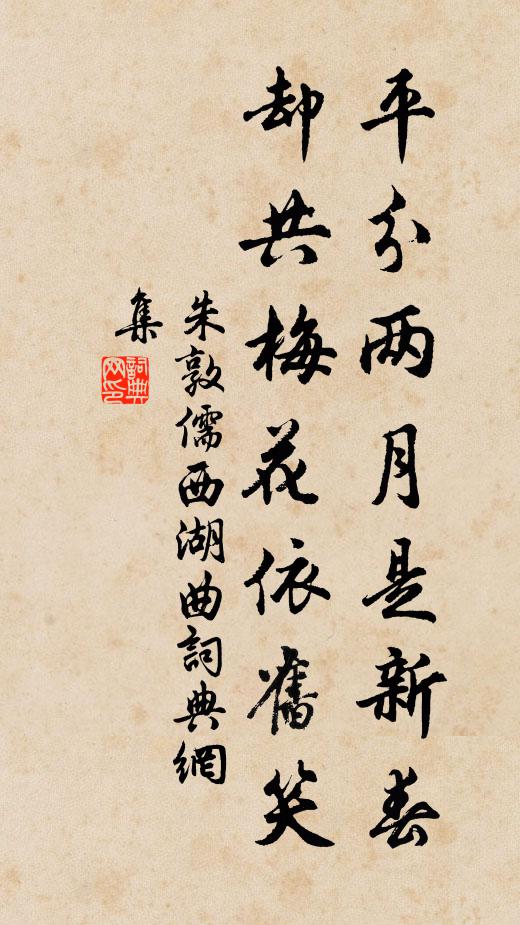 平分两月是新春
却共梅花依舊笑
朱敦儒西湖曲詞典網
集
詞典网印